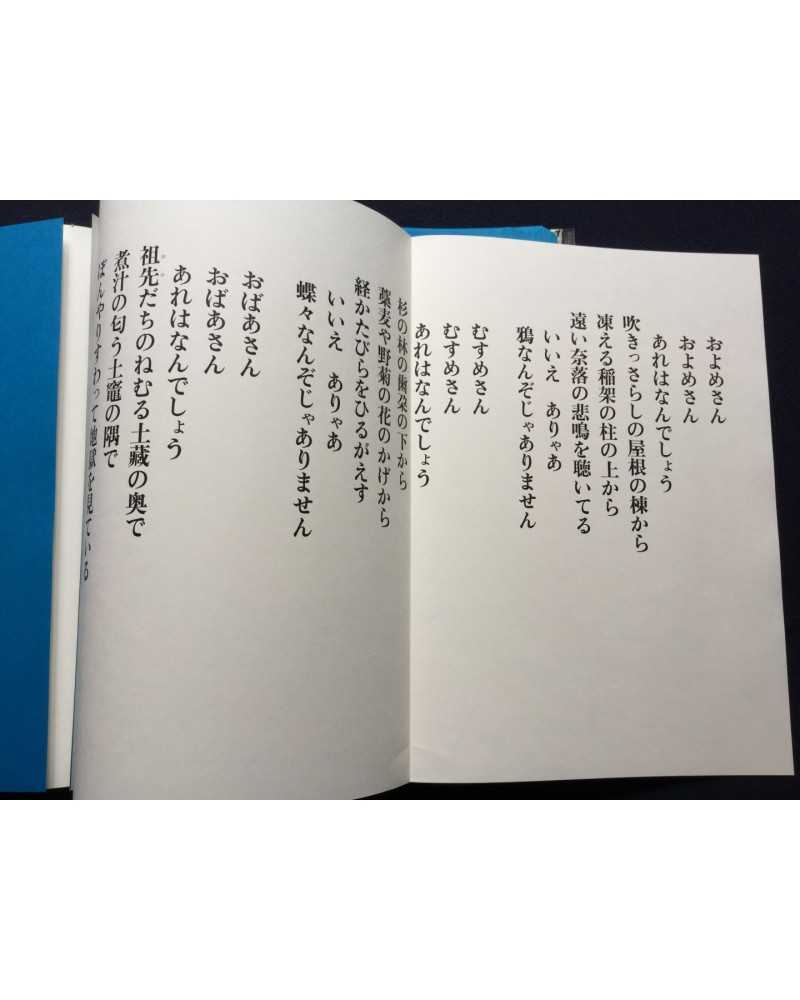 およめさん
およめさん
あれはなんでしょう
吹きっさらしの屋根の棟から
凍える稲架の柱の上から
遠い奈落の悲鳴を聴いてる
いいえ　ありゃあ
鴉なんぞじゃありません
むすめさん
むすめさん
あれはなんでしょう
杉の林の歯朶の下から
蕎麦や野菊の花のかげから
経かたびらをひるがえす
いいえ　ありゃあ
蝶々なんぞじゃありません
おばあさん
おばあさん
あれはなんでしょう
祖先だちのねむる土蔵の奥で
煮汁の匂う土竈の隅で
ぼんやりすわって地獄を見ている